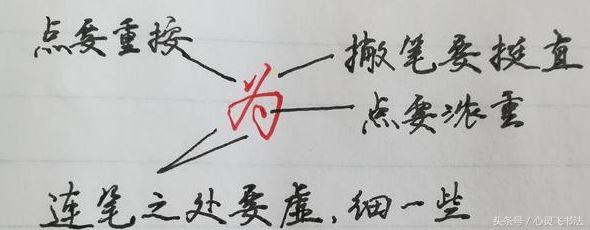 点要重按
撇笔要挺直
为
点要浓重
连笔之处要虚,细一些
头条号 / 心灵飞书法